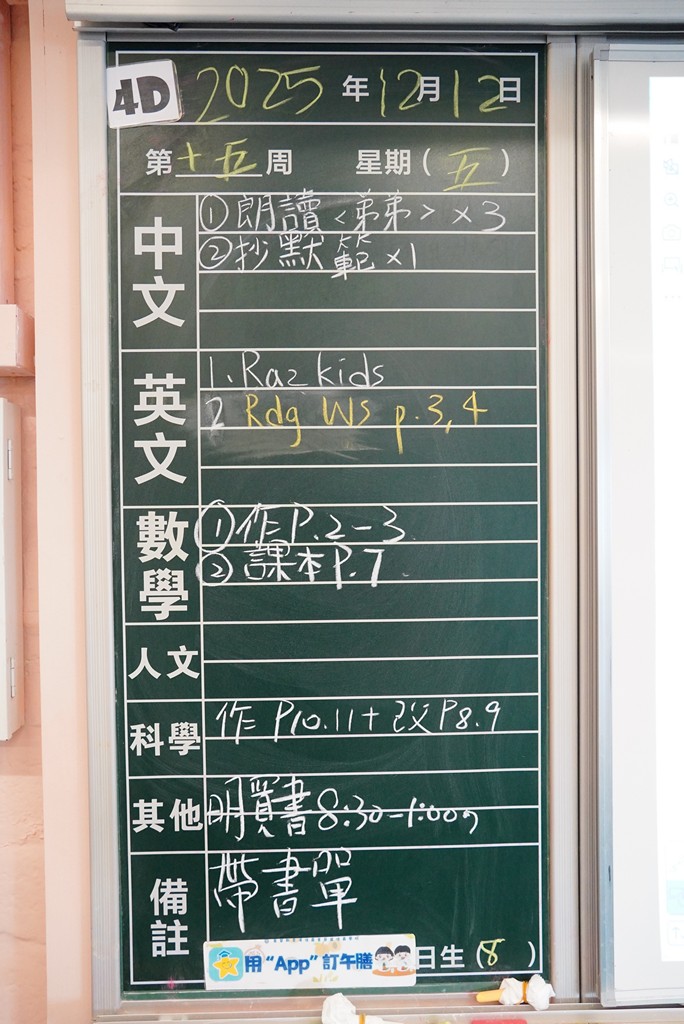 4D 2025年12月12日
第十五周 星期(五)
中文
①朗讀<弟弟>×3
②抄默範×1
英文
1. Raz kids
2 Rdg WS p.3,4
數學
①作P.2-3
②課本P.7
人文
科學
作P10.11+改P8.9
其他
明買書8:30-1:00
備註
帶書單
用“App”訂午膳
日生(8)